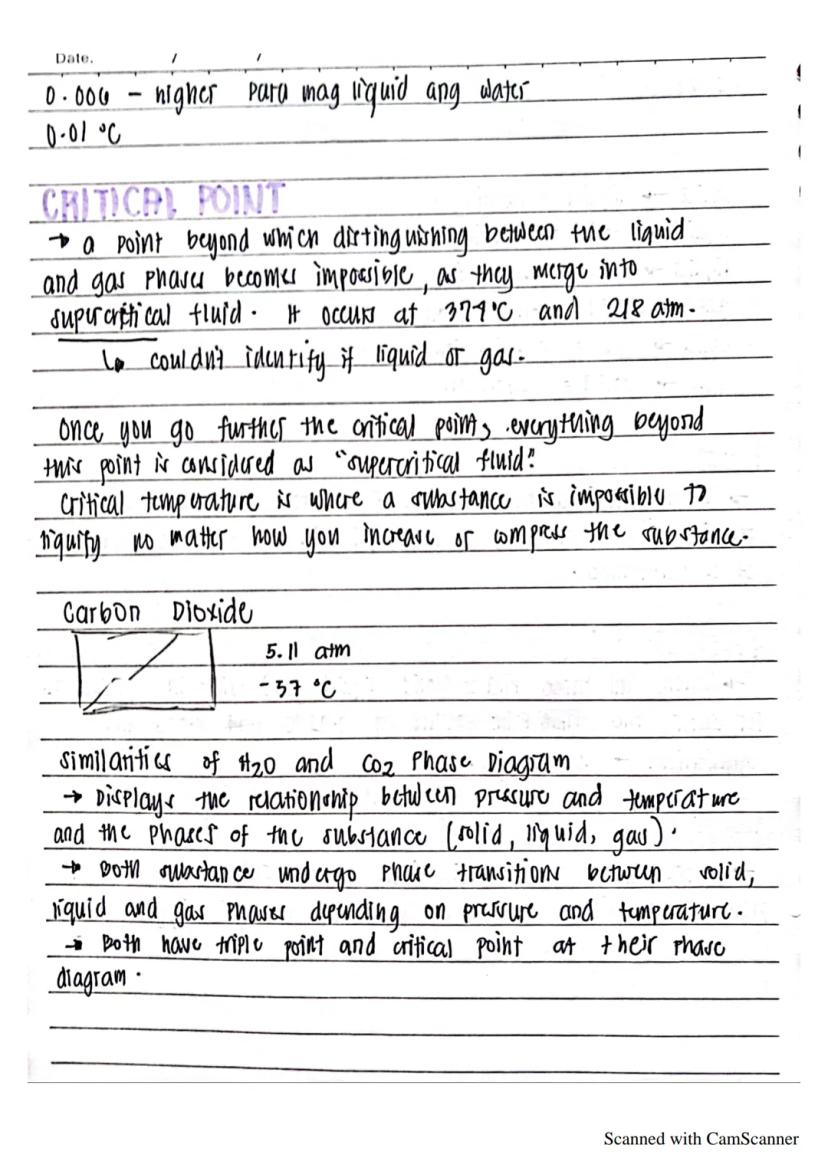 Date. / /
0.006 - higher para mag liquid ang water
0.01 °C
CRITICAL POINT
→ a point beyond which distinguishing between the liquid
and gas phases becomes impossible, as they merge into
supercritical fluid. It occurs at 374°C and 218 atm.
↳ couldn't identify if liquid or gas.
Once you go further the critical point, everything beyond
this point is considered as "supercritical fluid."
Critical temperature is where a substance is impossible to
liquify no matter how you increase or compress the substance.
Carbon Dioxide
5.11 atm
-57 °C
Similarities of H2O and CO2 Phase Diagram
→ Displays the relationship between pressure and temperature
and the phases of the substance (solid, liquid, gas).
→ Both substance undergo phase transitions between solid,
liquid and gas phases depending on pressure and temperature.
→ Both have triple point and critical point at their phase
diagram.
Scanned with CamScanner